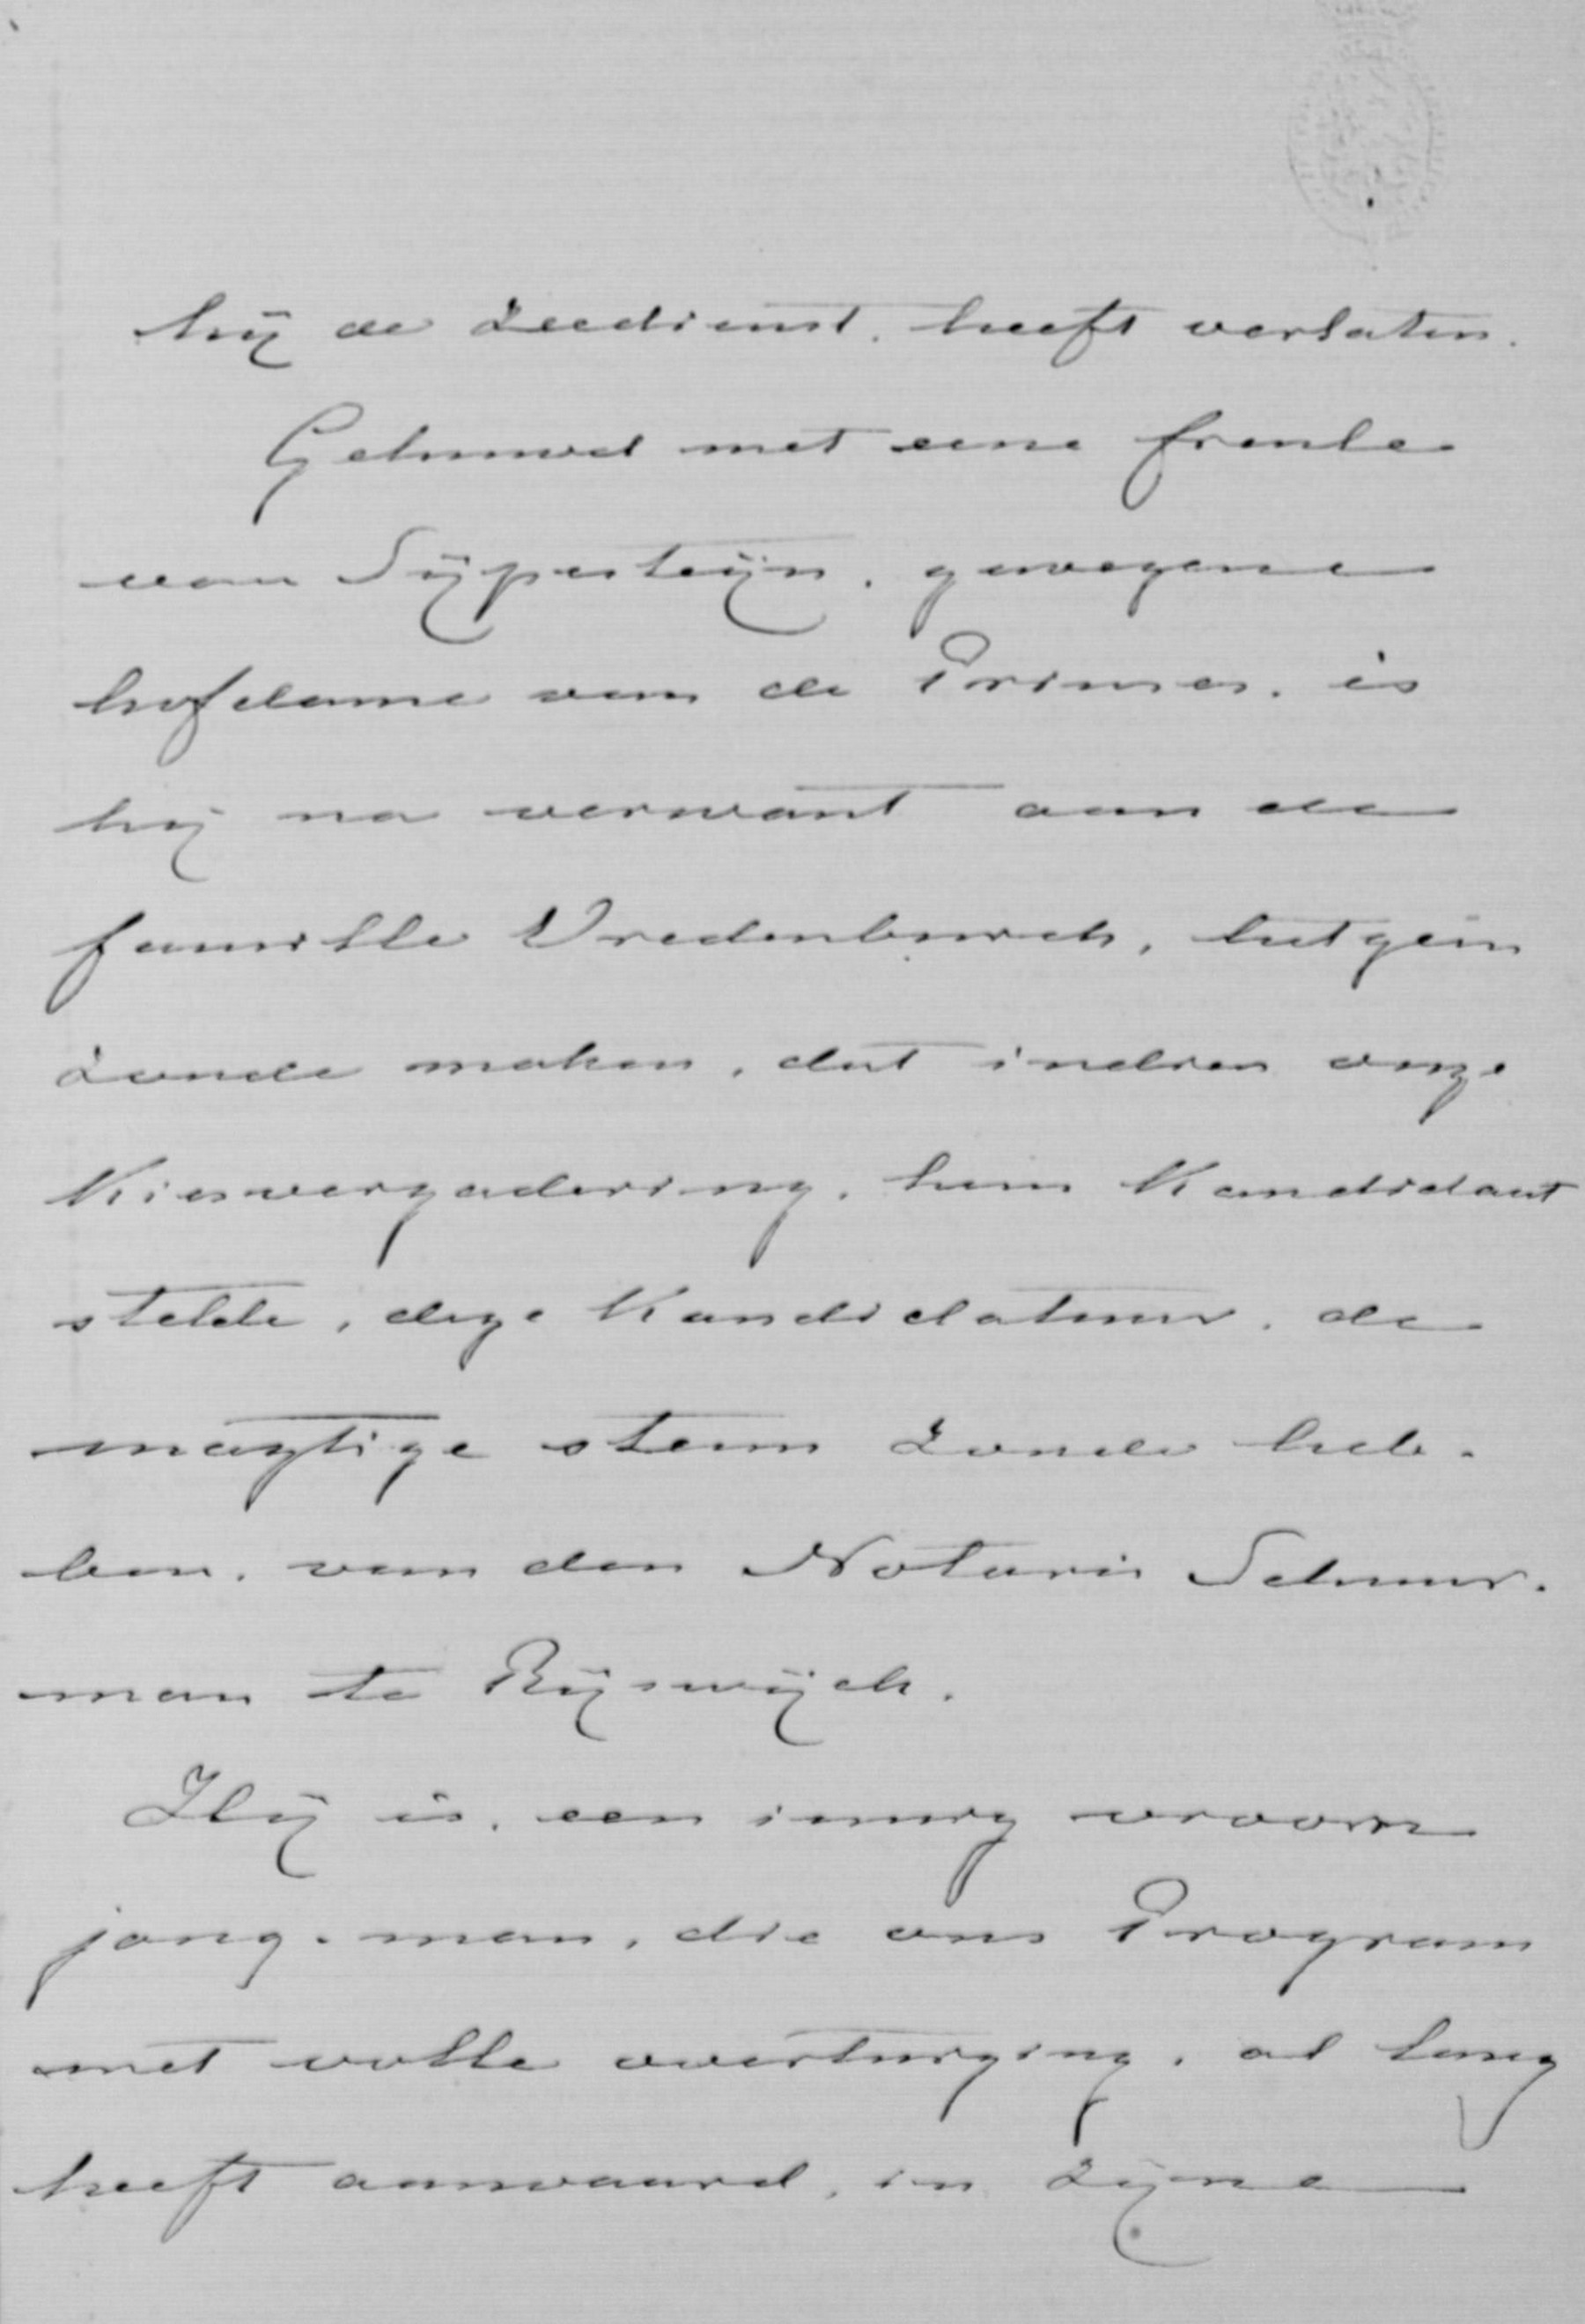 hij de Zeedienst. heeft verlaten.
Gehuwd met eene freule
van Sijpesteijn. gewezene
hofdame van de Prinses. is
hij na verwant aan de
famille Vredenburch, hetgeen
zoude maken, dat indien onze
Kiesvergadering. hem Kandidaat
stelde, deze Kandidatuur. de
magtige stem zoude heb-
ben. van den Notaris Schuur-
man te Rijswijck.
Hij is. een innig vroom
jong-man, die ons Program
met volle overtuiging. al lang
heeft aanvaard, in zijne